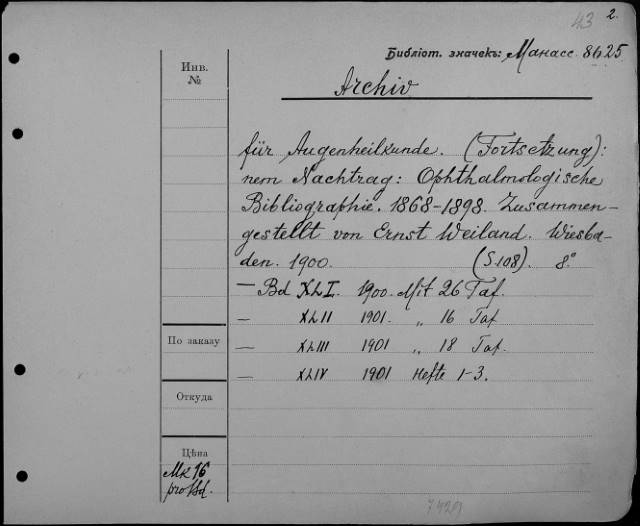 43 2.
Библіот. значекъ: Манасс. 8625
Инв.
№
Archiv
für Augenheilkunde. (Fortsetzung):
nem Nachtrag: Ophthalmologische
Bibliographie. 1868-1898. Zusammen-
gestellt von Ernst Weiland. Wiesba-
den. 1900. (S.108). 8.°
— Bd XLI. 1900. Mit 26 Taf.
— XLII 1901. „ 16 Taf
— XLIII 1901 „ 18 Taf.
— XLIV 1901 Hefte 1-3.
По заказу
Откуда
Цѣна
Mk 16
pro Bd.